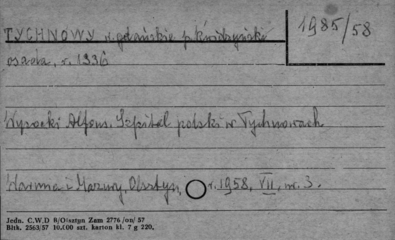 TYCHNOWY w. gdańskie p. kwidzyński
1985/58
osada, r. 1336
Wysocki Alfons. Szpital polski w Tychnowach
Warmia i Mazury, Olsztyn, r. 1958, VII, nr. 3.
Jedn. C.W.D 8/Olsztyn Zam 2776/on/57
Bltk. 2563/57 10.000 szt. karton kl. 7 g 220,